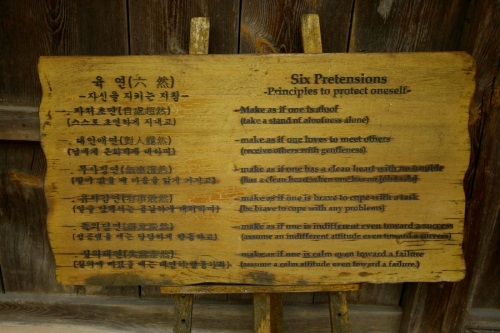 육 연(六 然)
-자신을 지키는 지침-
자처초연(自處超然)
(스스로 초연하게 지내고)
대인애연(對人靄然)
(남에게 온화하게 대하며)
무사징연(無事澄然)
(일이 없을 때 마음을 맑게 가지고)
유사감연(有事敢然)
(일을 당해서는 용감하게 대처하며)
득의담연(得意淡然)
(성공했을 때는 담담하게 행동하고)
실의태연(失意泰然)
(실의에 빠졌을 때는 태연히 행동하라)
Six Pretensions
-Principles to protect oneself-
-Make as if one is aloof
(take a stand of aloofness alone)
-make as if one loves to meet others
(receive others with gentleness)
-make as if one has a clean heart with no trouble
(has a clean heart when one has no
-make as if one is brave to cope with a task
(be brave to cope with any problems)
-make as if one is indifferent even toward a success
(assume an indifferent attitude even toward a success)
-make as if one is calm even toward a failure
(assume a calm attitude even toward a failure.)